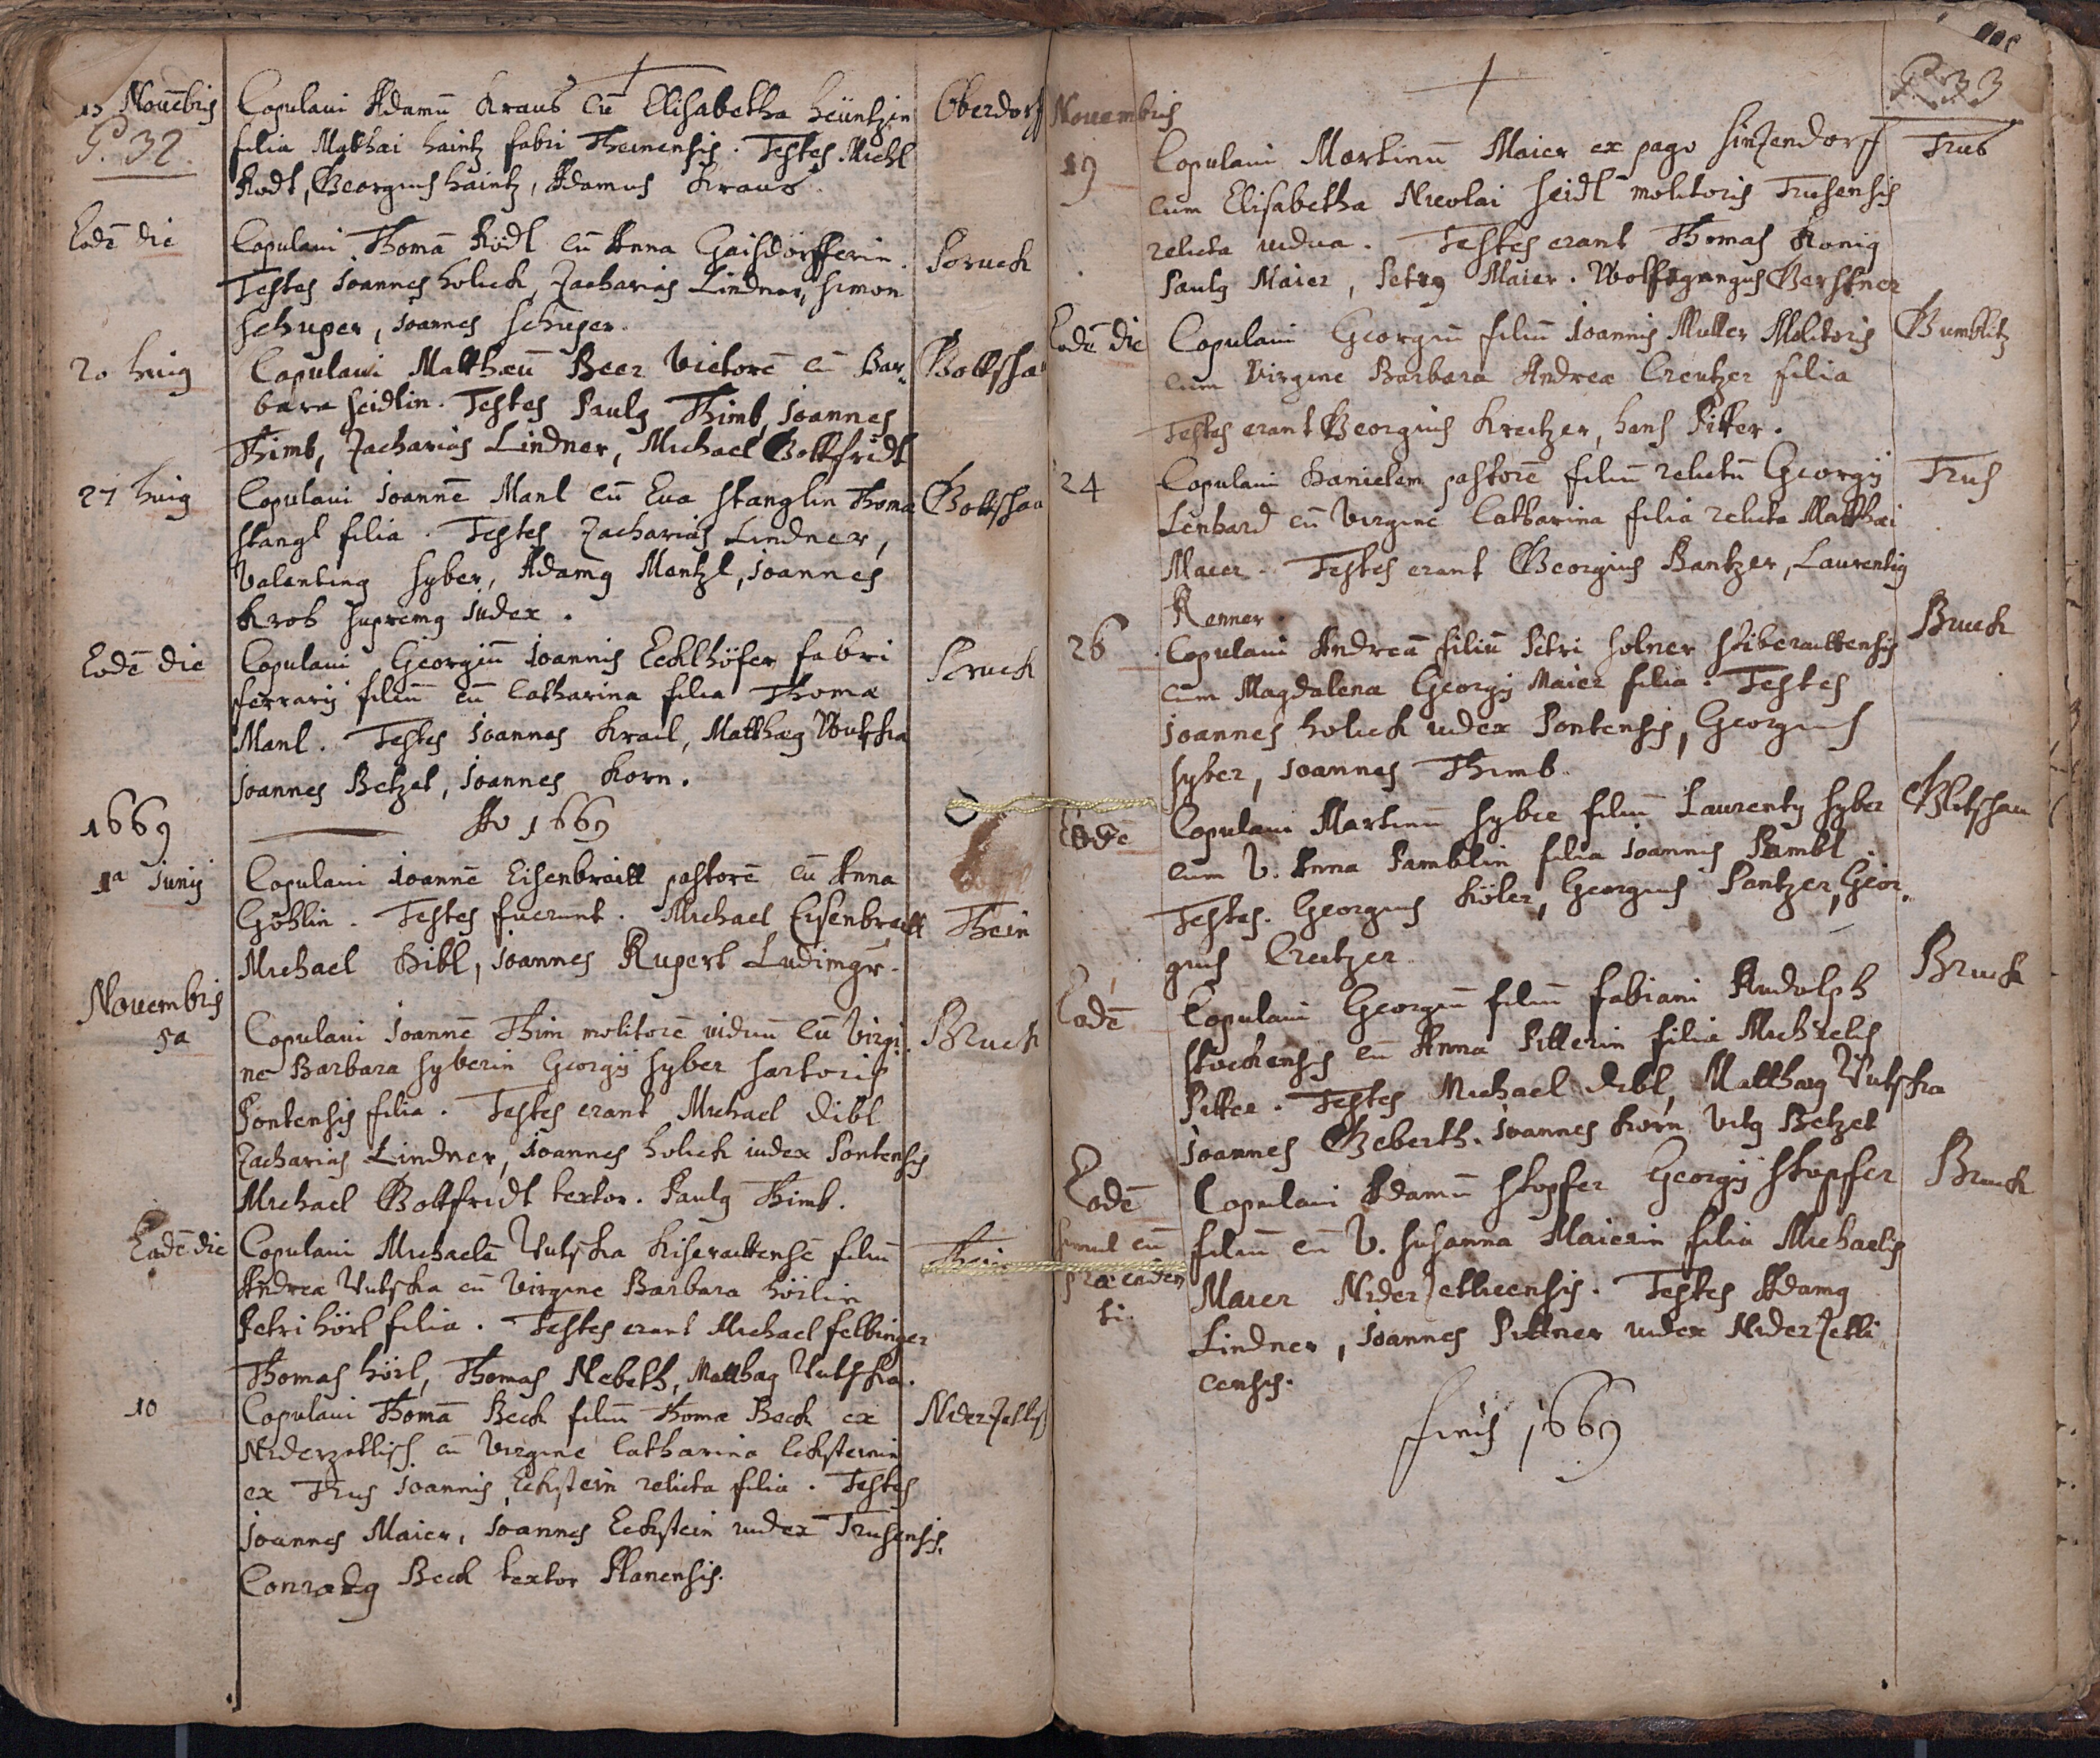 13 Novēbris Copulavi Adamū Kraus cū Elisabetha Heüntzin Oberdorf
P. 32. filia Mathai Haintz fabri Theinensis. Testes Michl
Rodt, Georgius Haintz, Adamus Kraus.
Eodē die Copulavi Thomā Rödl cū Anna Gaisdörfferin. Pruck
Testes Joannes Holick, Zacharias Lindner, Simon
Schuper, Joannes Schuper.
20 huig Copulavi Matthæū Beer Victorē cū Bar- Gottscha
bara Seidlin. Testes Paulg Thimb, Joannes
Thimb, Zacharias Lindner, Michael Gottfridt
27 huig Copulavi Joannē Manl cū Eva Stanglin Thoma Gottschau
Stangl filia. Testes Zacharias Lindner,
Valenting Syber, Adamg Mentzl, Joannes
Krob supremg Judex.
Eodē die Copulavi Georgiū Joannis Ecklhöfer fabri Pruck
ferrarij filiū cū Catharina filia Thomæ
Manl. Testes Joannes Krail, Matthæg Wutska
Joannes Betzel, Joannes Korn.
1669 Ao 1669
1a Junij Copulavi Joannē Eisenbreitt pastorē cū Anna
Göhlin. Testes fuerunt. Michael Eisenbreitt Thein
Michael Dibl, Joannes Rupert Ludimgr.
Novembris
5a Copulavi Joannē Thim molitorē viduū cū Virgi- Bruck
ne Barbara Syberin Georgij Syber Sartoris
Pontensis filia. Testes erant Michael Dibl
Zacharias Lindner, Joannes Holick iudex Pontensis
Michael Gottfridt textor. Paulg Thimb.
Eadē die Copulavi Michaelē Vutska Kiserittensē filiū Thein
Andreæ Vutska cū Virgine Barbara Hörlin
Petri Hörl filia. Testes erant Michael Felbinger
Thomas Hörl, Thomas Nebeth, Matthæg Vutska.
10 Copulavi Thomā Beck filiū Thomæ Beck ex Niderzetlisch
Niderzetlisch cū Virgine Catharina Ecksteinin
ex Trus Joannis Eckstein relicta filia. Testes
Joannes Maier, Joannes Eckstein iudex Trusensis,
Conradg Beck textor Planensis.
P. 33
Novembris
19 Copulavi Martinū Maier ex pago Sinzendorf Trus
cum Elisabetha Nicolai Seidl molitoris Trusensis
relicta vidua. Testes erant Thomas König
Paulg Maier, Petrg Maier. Wolffgangus Gerstner
Eodē die Copulavi Georgiū filiū Joannis Muller Molitoris Gumblitz
cum Virgine Barbara Andreæ Creutzer filia
Testes erant Georgius Kreitzer, Hans Pitter.
24 Copulavi Danielem pastorē filiū relictū Georgij Trus
Lenhard cū Virgine Catharina filia relicta Matthæi
Maier. Testes erant Georgius Bantzer, Laurentig
Renner.
26 Copulavi Andreā filiū Petri Solner Stiberaittensis Bruck
cum Magdalena Georgij Maier filia. Testes
Joannes Holick iudex Pontensis, Georgius
Syber, Joannes Thimb.
Eodē Copulavi Martinū Syber filiū Laurentij Syber Gottschau
cum V. Anna Pamblin filia Joannis Pambl.
Testes. Georgius Köler, Georgius Pantzer, Geor-
gius Creitzer.
Eodē Copulavi Georgiū filiū Fabiani Rudolph Bruck
Stockensis cū Anna Pitterin filia Michaelis
Pitter. Testes Michael Dibl, Matthæg Vutska
Joannes Geberth. Joannes Korn. Vitg Betzel
Eodē Copulavi Adamū Stopfer Georgij Stopfer Bruck
simul cū filiū cū V. Susanna Maierin filia Michaelis
præceden Maier Niderzetlicensis. Testes Adamg
ti. Lindner, Joannes Pittner iudex Niderzetli
censis.
Finis 1669